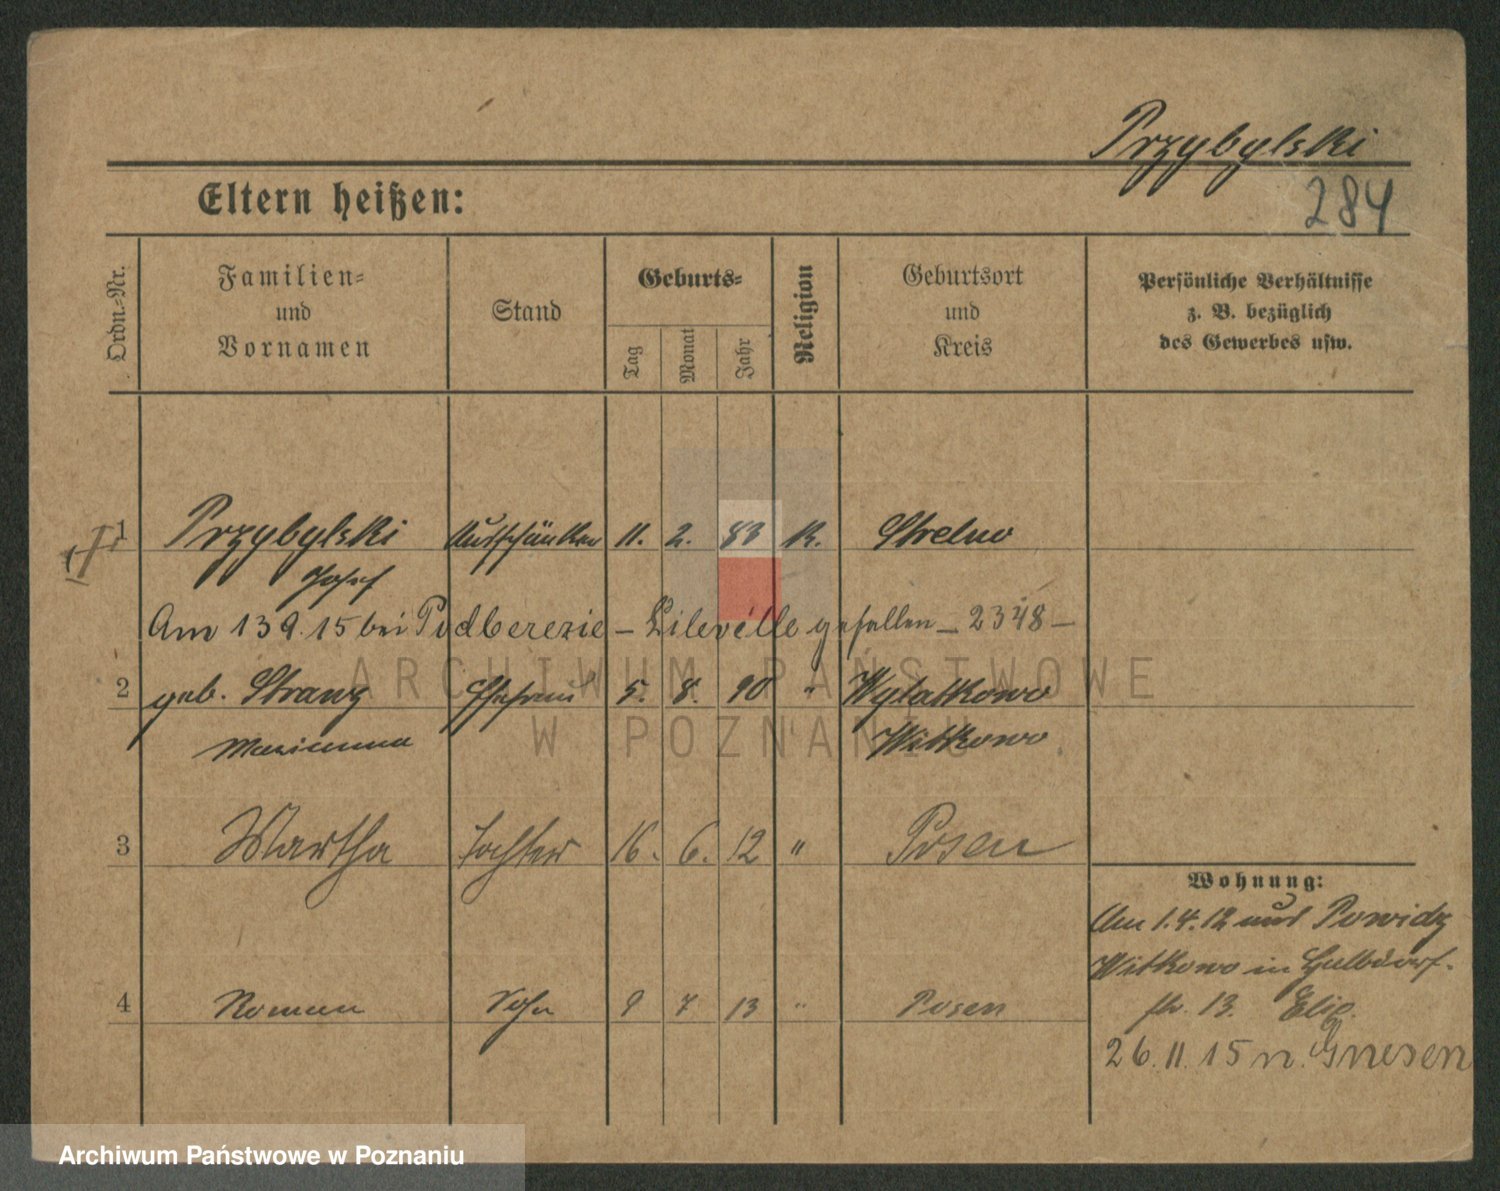 Przybylski
Eltern heißen:
284
Ordn.-Nr.
Familien-
und
Vornamen
Stand
Geburts-
Tag
Monat
Jahr
Religion
Geburtsort
und
Kreis
Persönliche Verhältnisse
z. B. bezüglich
des Gewerbes usw.
1 Przybylski 11. 2. 83 K. Strelno
Josef
Am 13 9. 15 bei Podberezie – Lilevélle gefallen – 2348 –
2 geb. Stranz Ehefrau 5. 8. 90 " Wylatkowo
Marianna Witkowo
3 Martha Tochter 16. 6. 12 " Posen
4 Roman Sohn 9 7 13 " Posen
Wohnung:
Am 1.4.12 aus Powidz
Witkowo in
str. 13.
26.11.15 n. Gnesen
ARCHIWUM PAŃSTWOWE
W POZNANIU
Archiwum Państwowe w Poznaniu